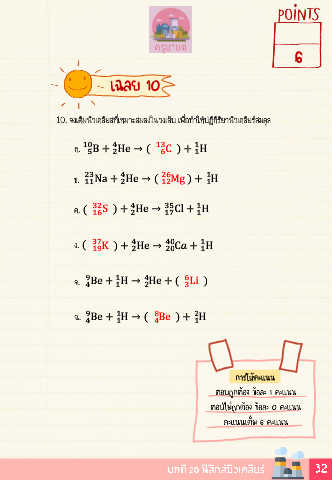 POINTS
6
ครูนายด
เฉลย 10
10. จงเติมนิวเคลียสที่เหมาะสมลงในวงเล็บ เพื่อทำให้ปฏิกิริยานิวเคลียร์สมดุล
ก. ¹⁰₅B + ⁴₂He → ( ¹³₆C ) + ¹₁H
ข. ²³₁₁Na + ⁴₂He → ( ²⁶₁₂Mg ) + ¹₁H
ค. ( ³²₁₆S ) + ⁴₂He → ³⁵₁₇Cl + ¹₁H
ง. ( ³⁷₁₉K ) + ⁴₂He → ⁴⁰₂₀Ca + ¹₁H
จ. ⁹₄Be + ¹₁H → ⁴₂He + ( ⁶₃Li )
ฉ. ⁹₄Be + ¹₁H → ( ⁸₄Be ) + ²₁H
การให้คะแนน
ตอบถูกต้อง ข้อละ 1 คะแนน
ตอบไม่ถูกต้อง ข้อละ 0 คะแนน
คะแนนเต็ม 6 คะแนน
บทที่ 20 ฟิสิกส์นิวเคลียร์ 32